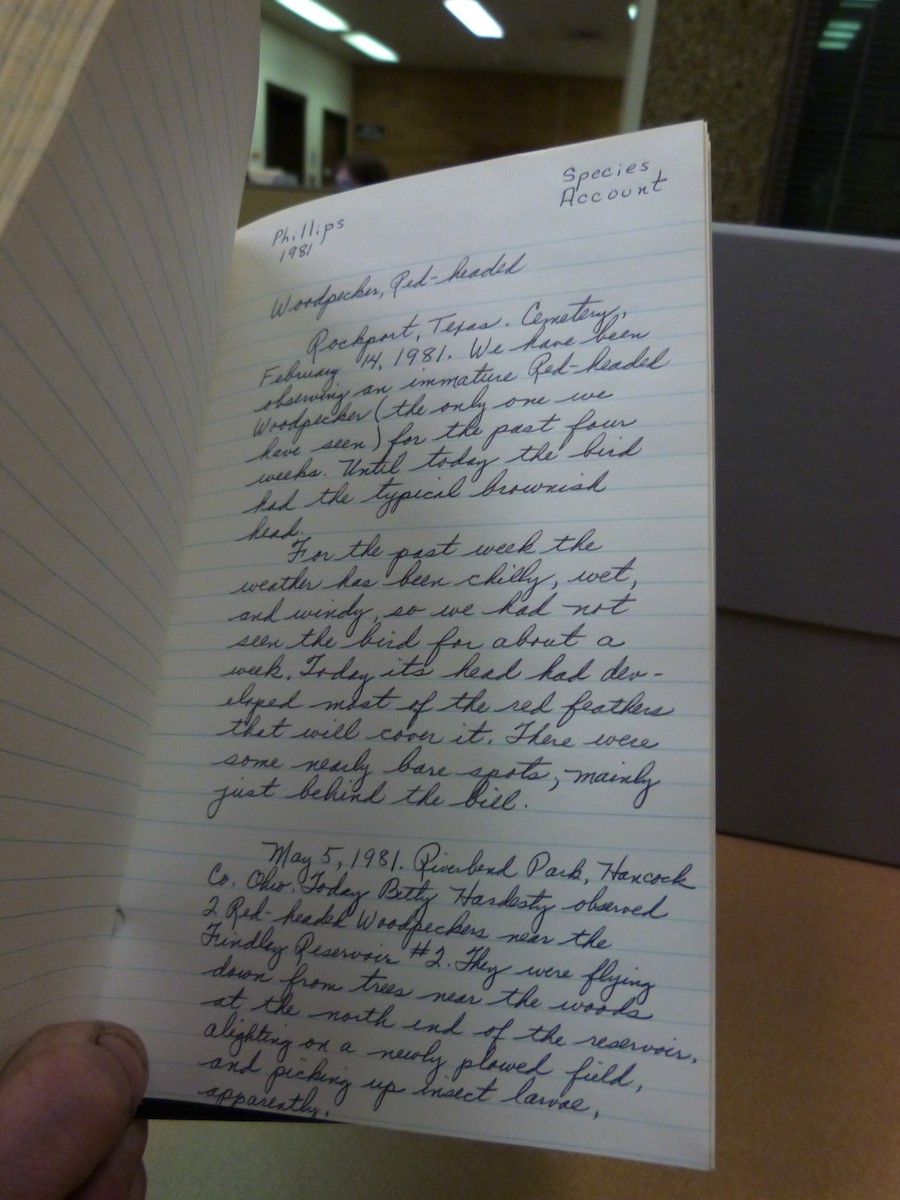 Species
Account
Phillips
1981
Woodpecker, Red-headed
Rockport, Texas. Cemetery,
February 14, 1981. We have been
observing an immature Red-headed
Woodpecker (the only one we
have seen) for the past four
weeks. Until today the bird
had the typical brownish
head.
For the past week the
weather has been chilly, wet,
and windy, so we had not
seen the bird for about a
week. Today its head had dev-
eloped most of the red feathers
that will cover it. There were
some nearly bare spots, mainly
just behind the bill.
May 5, 1981. Riverbend Park, Hancock
Co. Ohio. Today Betty Hardesty observed
2 Red-headed Woodpeckers near the
Findley Reservoir #2. They were flying
down from trees near the woods
at the north end of the reservoir,
alighting on a newly plowed field,
and picking up insect larvae,
apparently.